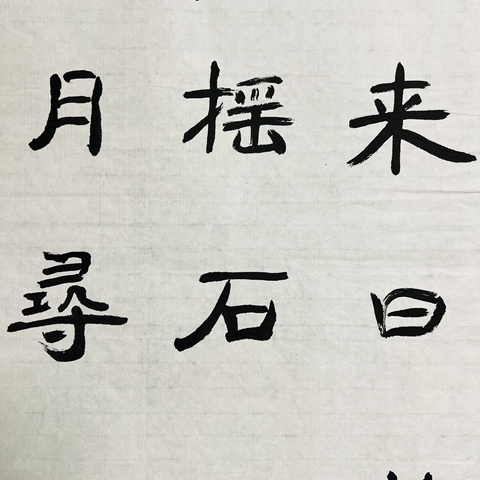 来日
摇石
月尋